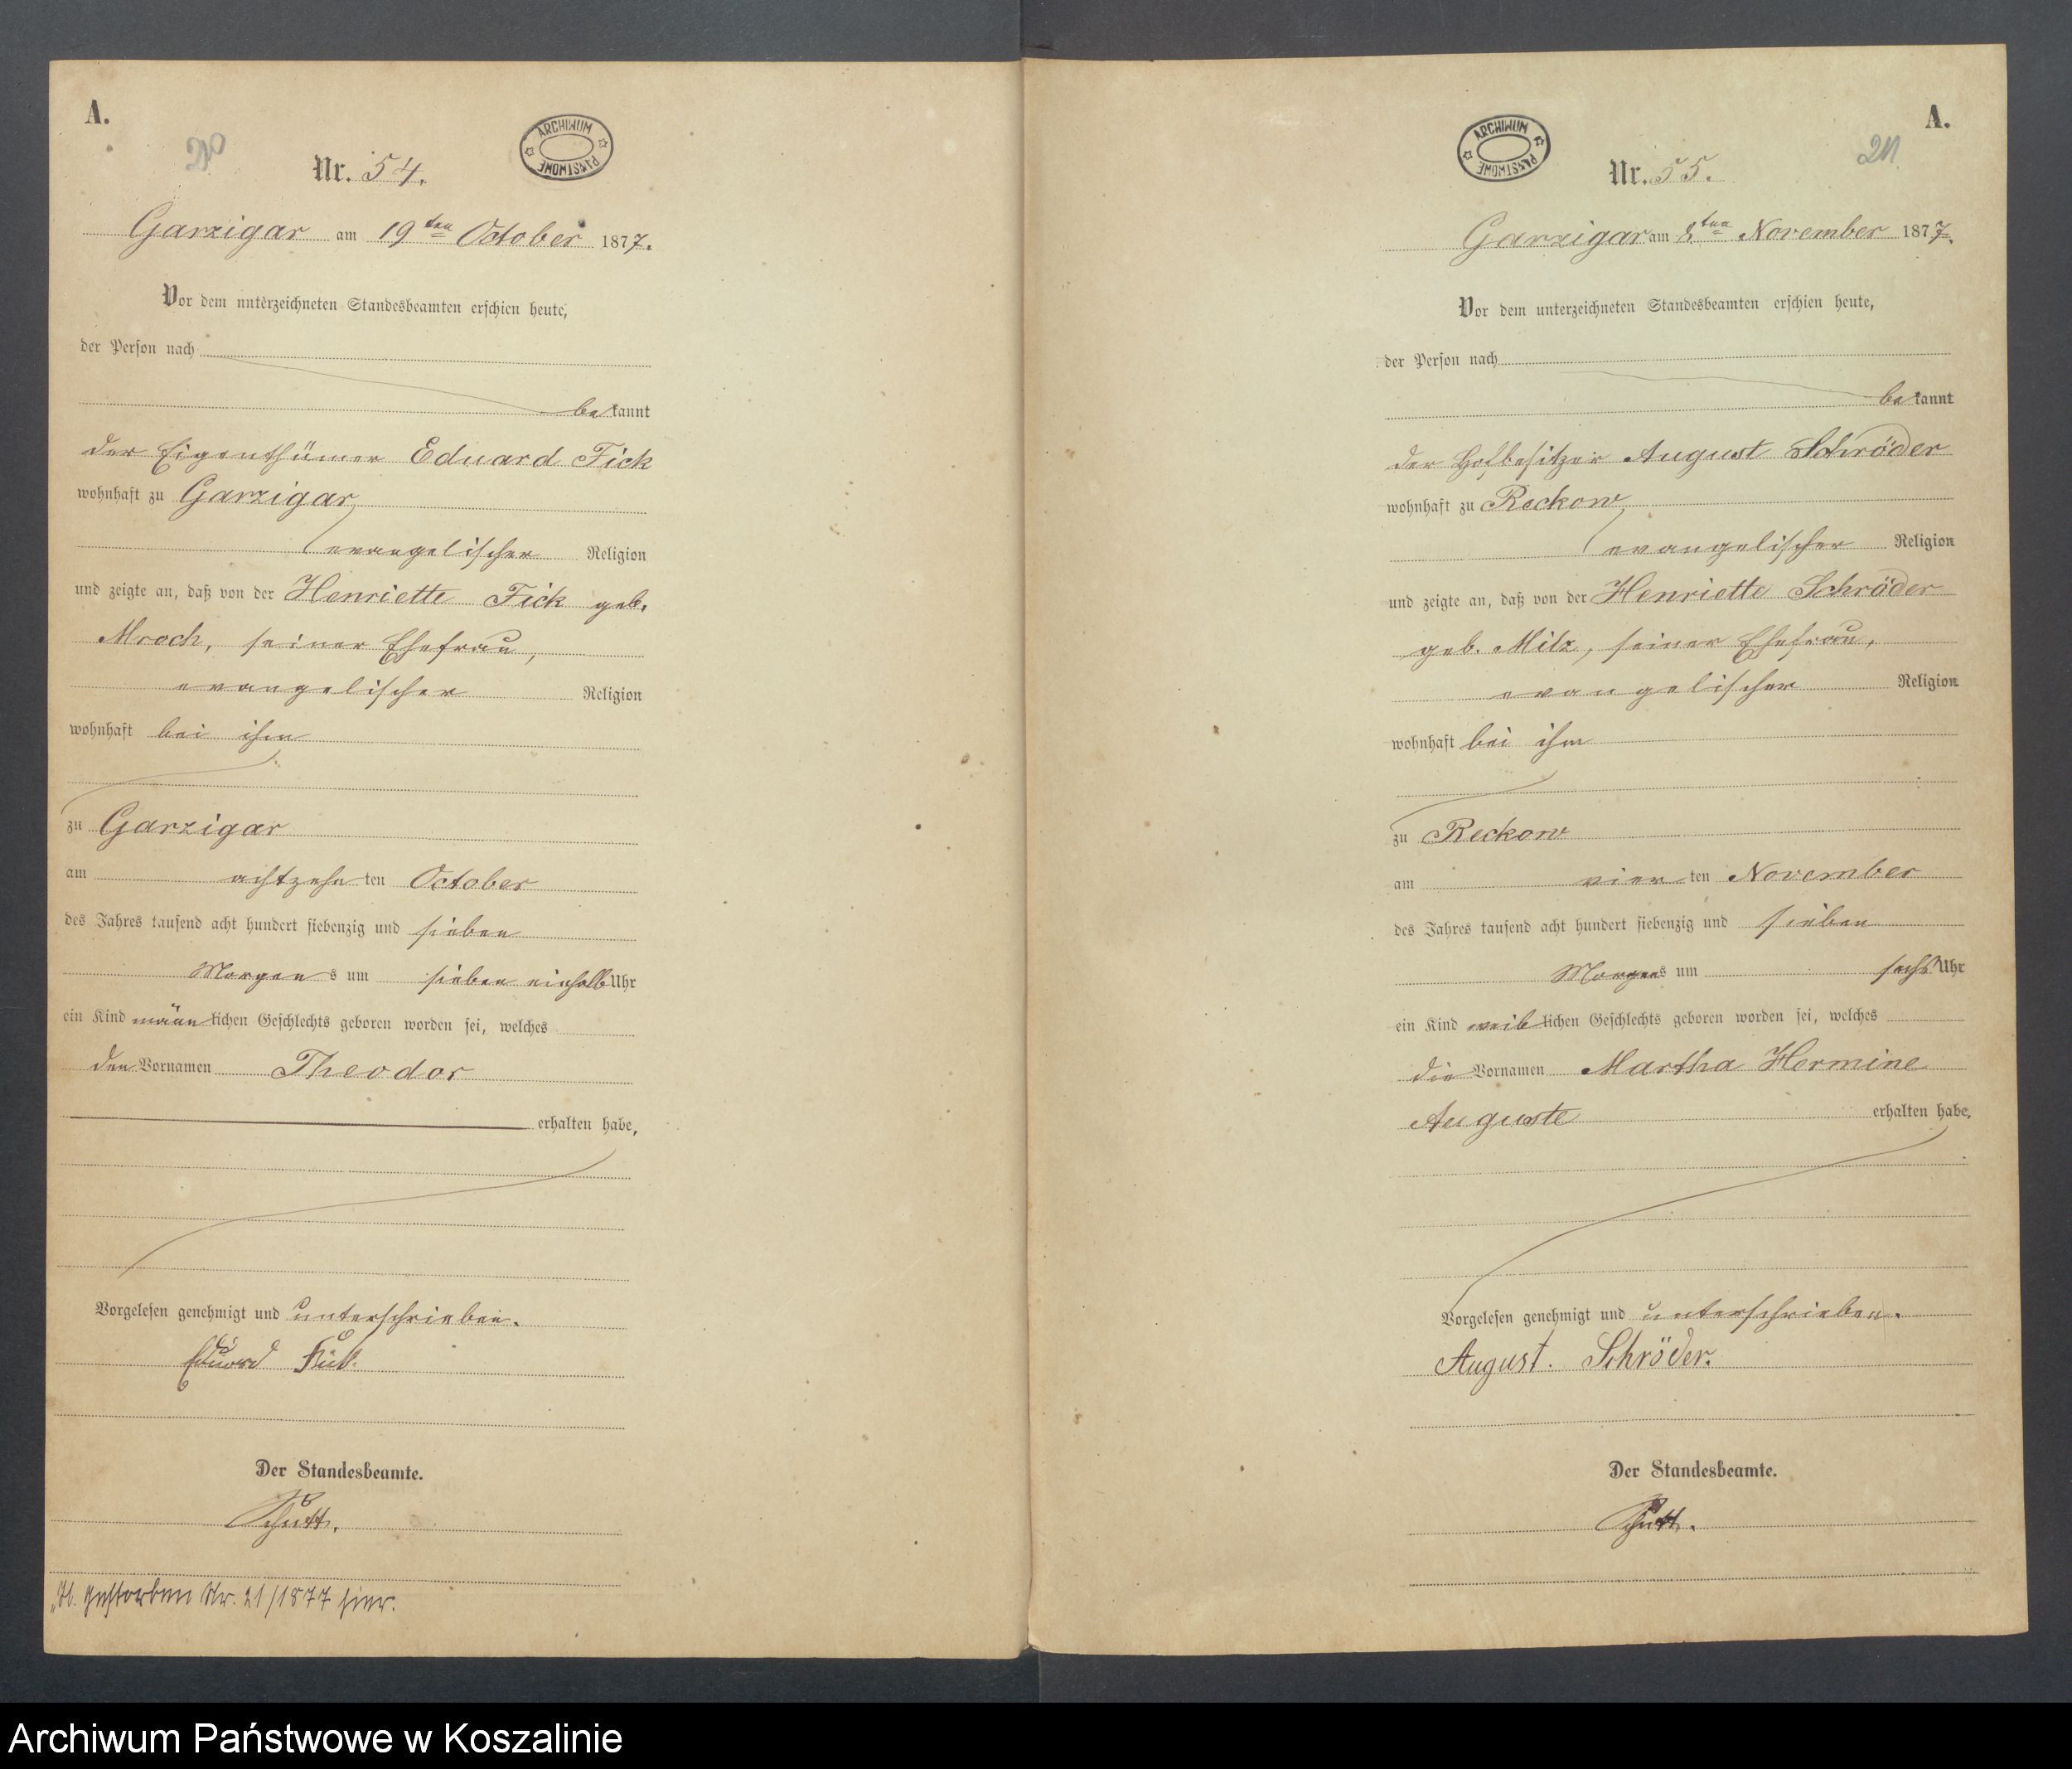 A.
Nr. 54.
ARCHIWUM PAŃSTWOWE
Garzigar am 19ten October 1877.
Vor dem unterzeichneten Standesbeamten erschien heute,
der Person nach
bekannt
der Eigenthümer Eduard Fick
wohnhaft zu Garzigar
evangelischer Religion
und zeigte an, daß von der Henriette Fick geb.
Mroch, seiner Ehefrau,
evangelischer Religion
wohnhaft bei ihm
zu Garzigar
am achtzehnten October
des Jahres tausend acht hundert siebenzig und sieben
Morgens um sieben einhalb Uhr
ein Kind männlichen Geschlechts geboren worden sei, welches
den Vornamen Theodor
erhalten habe,
Vorgelesen genehmigt und unterschrieben.
Eduard Fick.
Der Standesbeamte.
gestorben Nr. 21/1877 hier.
A.
21
Nr. 55.
ARCHIWUM PAŃSTWOWE
Garzigar am 8ten November 1877.
Vor dem unterzeichneten Standesbeamten erschien heute,
der Person nach
bekannt
der Hofbesitzer August Schröder
wohnhaft zu Reckow
evangelischer Religion
und zeigte an, daß von der Henriette Schröder
geb. Milz, seiner Ehefrau,
evangelischer Religion
wohnhaft bei ihm
zu Reckow
am vierten November
des Jahres tausend acht hundert siebenzig und sieben
Morgens um sechs Uhr
ein Kind weiblichen Geschlechts geboren worden sei, welches
die Vornamen Martha Hermine
Auguste erhalten habe,
Vorgelesen genehmigt und unterschrieben.
August. Schröder.
Der Standesbeamte.
Archiwum Państwowe w Koszalinie